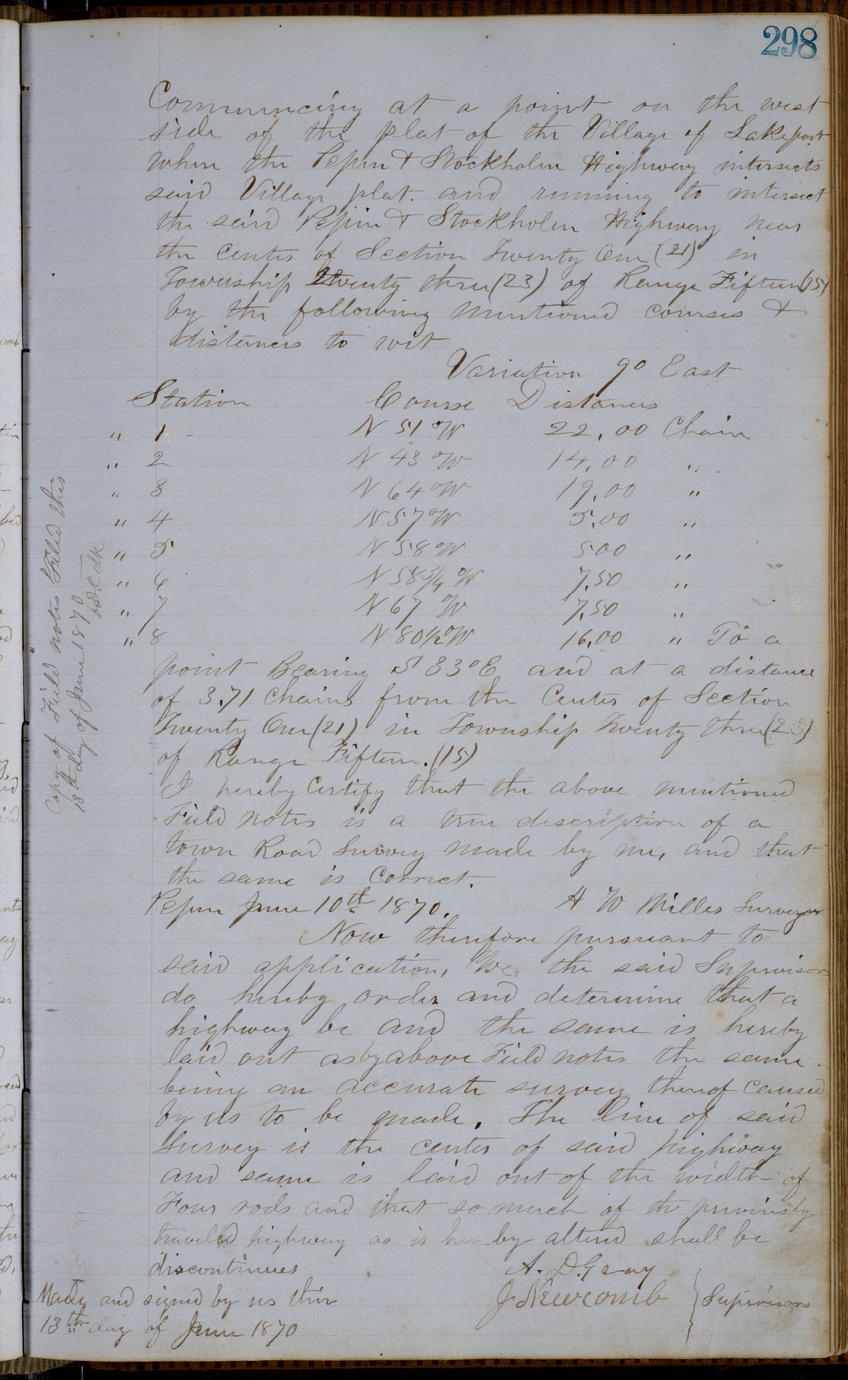 298
Commencing at a point on the west
side of the plat of the Village of Lakeport
when the Pepin & Stockholm Highway intersects
said Village plat. and running to intersect
the said Pepin & Stockholm Highway near
the center of Section Twenty One (21) in
Township Twenty three (23) of Range Fifteen (15)
by the following mentioned courses &
distances to wit
Variation 9° East
Station Course Distances
" 1 N 51° W 22,00 Chain
" 2 N 43° W 14,00 "
" 3 N 64° W 19,00 "
" 4 N 57° W 5,00 "
" 5 N 58° W 500 "
" 6 N 58¾ W 7,50 "
" 7 N 67 °W 7,50 "
" 8 N 80½° W 16,00 " To a
point Bearing S 33° E and at a distance
of 3.71 chains from the Center of Section
Twenty One (21) in Township Twenty three (23)
of Range Fifteen. (15)
I hereby Certify that the above mentioned
Field notes is a true description of a
town Road Survey made by me, and that
the same is Correct.
Pepin June 10th 1870. H W Miller Surveyor
Now therefore pursuant to
said application, We the said Supervisors
do hereby order and determine that a
highway be and the same is hereby
laid out as by above Field notes the same
being an accurate survey thereof caused
by us to be made. The line of said
Survey is the center of said highway
and same is laid out of the width of
Four rods and that so much of the previously
traveled highway as is hereby altered shall be
discontinued
A. D. Gray
J Newcomb } Supervisors
Made and signed by us this
13th day of June 1870
Copy of Field notes Filed this
13th day of June 1870